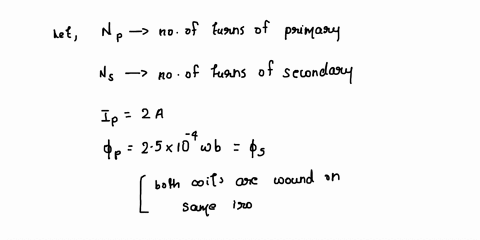 Let, Np —> no. of turns of primary
Ns —> no. of turns of secondary
Ip = 2 A
ϕp = 2.5 x 10^-4 wb = ϕs
[ both coils are wound on
same iro